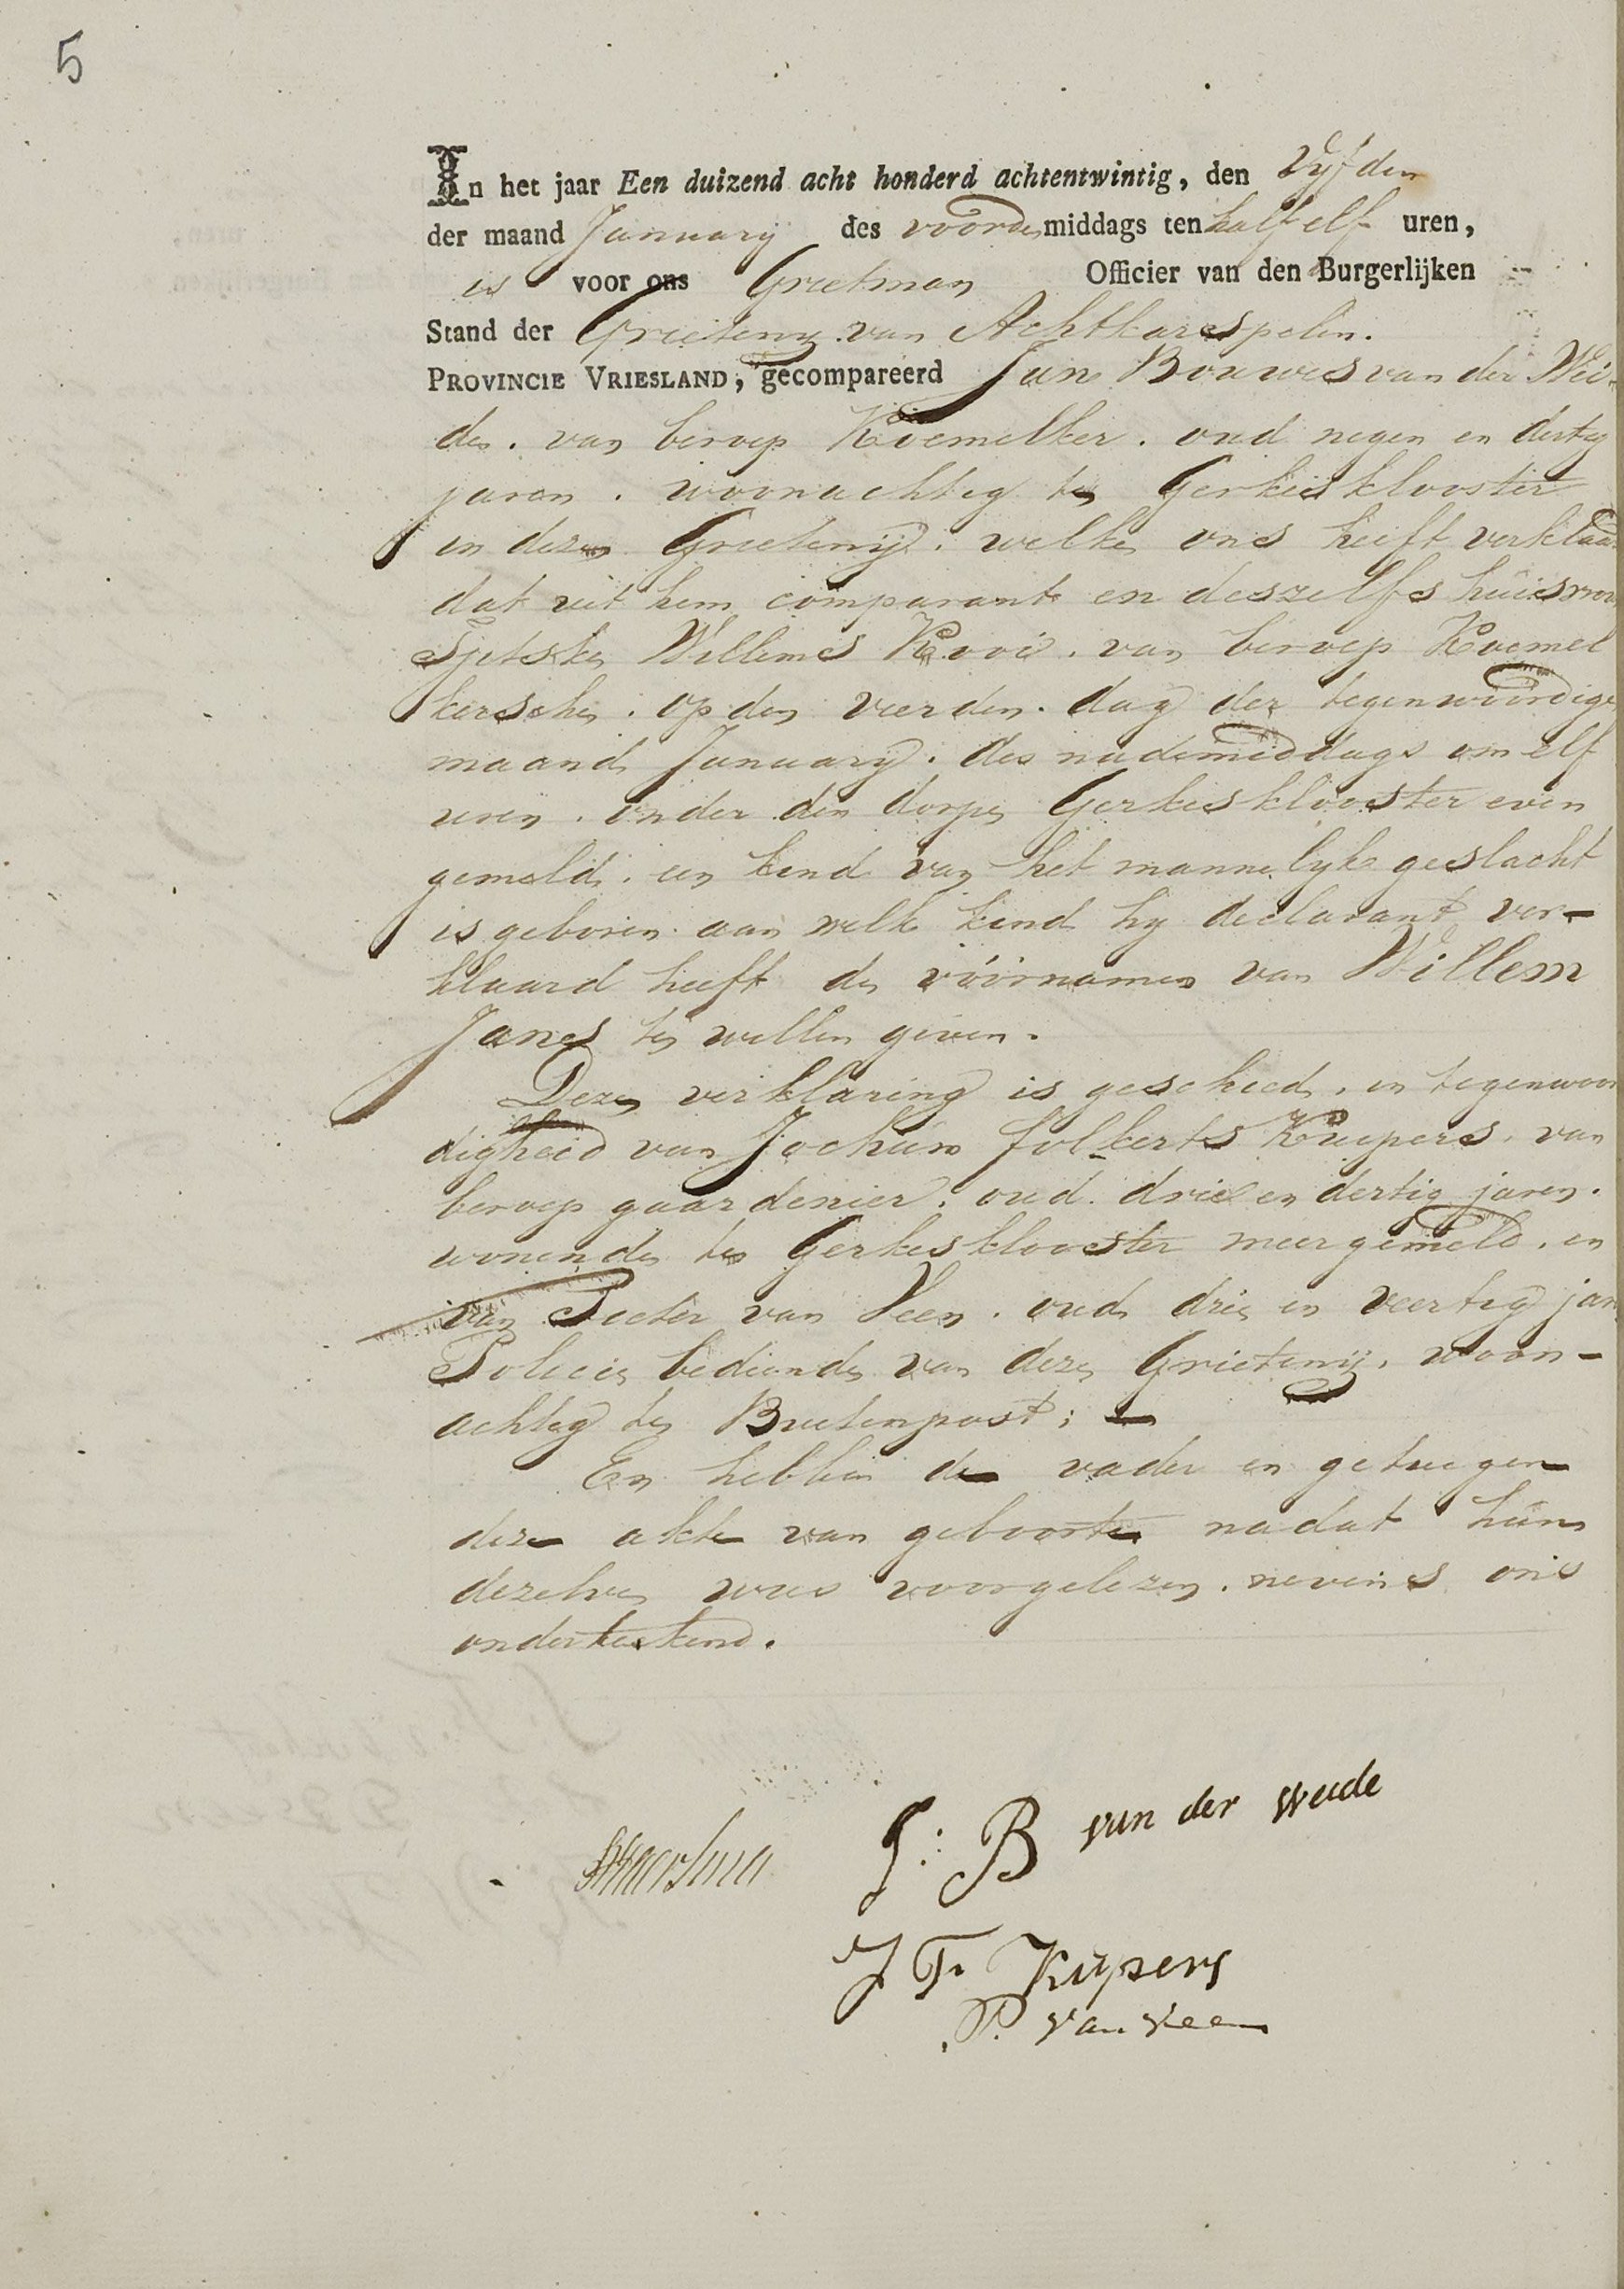 5
In het jaar Een duizend acht honderd achtentwintig, den Vyfden
der maand January des voorde middags ten half elf uren,
is voor ons Grietman Officier van den Burgerlijken
Stand der Grieteny van Achtkarspelen.
PROVINCIE VRIESLAND, gecompareerd Jan Bouwes van der Wei-
de. van beroep Koemelker. oud negen en dertig
jaren. woonachtig te Gerkesklooster
in deze Grietenij. welke ons heeft verklaar
dat uit hem comparant en deszelfs huisvrou
Sjitske Willems Kooi. van beroep Koemel
kersche. op den vierden. dag der tegenwoordige
maand January. des nademiddags om elf
uren. onder den dorpe Gerkesklooster even
gemeld. een kind van het mannelyke geslacht
is geboren. aan welk kind hy declarant ver-
klaard heeft de voornamen van Willem
Janes te willen geven.
Deze verklaring is geschied. in tegenwoor
digheid van Jochum Folkerts Kuipers. van
beroep gaardenier. oud drie en dertig jaren.
wonende te Gerkesklooster meergemeld. en
van Pieter van Veen. oud drie en veertig jar
Policie bediende van deze Grietenij. woon-
achtig te Buitenpost;
En hebben de vader en getuigen
deze akte van geboorte nadat hun
dezelve was voorgelezen. nevens ons
onderteekend.
J: B van der Weide
J F. Kuipers
P. van Veen